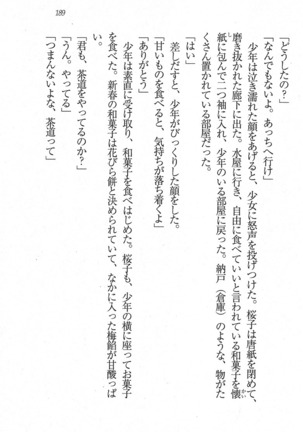 189
「どうしたの？」
「なんでもないよ。あっちへ行け」
　少年は泣き濡れた顔をあげると、少女に怒声を投げつけた。桜子は唐紙を閉めて、
磨き抜かれた廊下に出た。水屋に行き、自由に食べていいと言われている和菓子を懐
紙に包んで二つ袖に入れ、少年のいる部屋に戻った。納戸（倉庫）のような、物がた
くさん置かれている部屋だった。
「はい」
　差しだすと、少年がびっくりした顔をした。
「甘いものを食べると、気持ちが落ち着くよ」
「ありがとう」
　少年は素直に受け取り、和菓子を食べはじめた。桜子も、少年の横に座ってお菓子
を食べた。新春の和菓子は花びら餅と決められていて、なかに入った梅餡が甘酸っぱ
「君も、茶道をやってるのか？」
「うん。やってる」
「つまんないよな、茶道って」